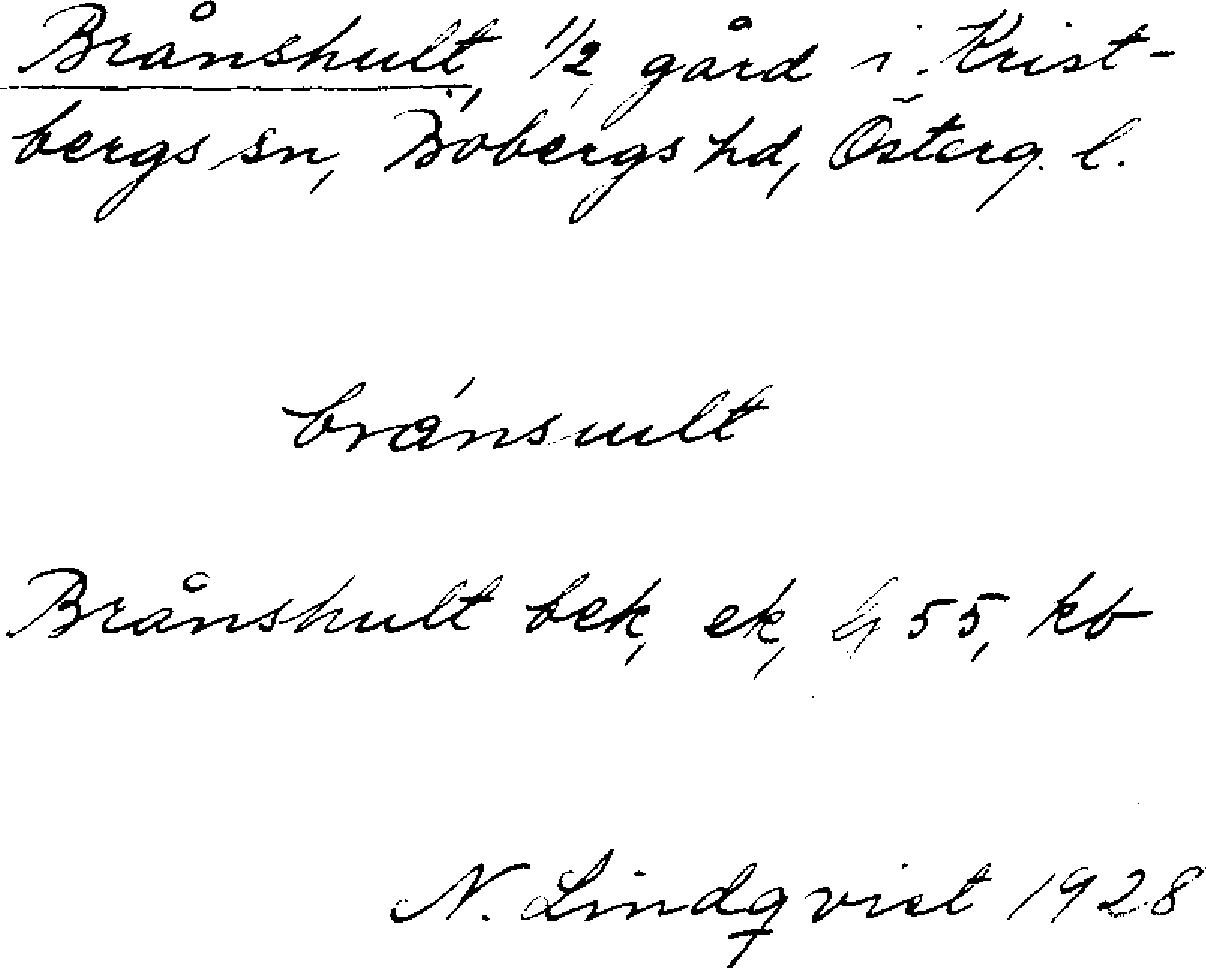 Brånshult, 1/2 gård i Krist-
bergs sn, Bobergs hd, Österg. l.
bránsult
Brånshult bek, ek, 55, kb
N. Lindqvist 1928